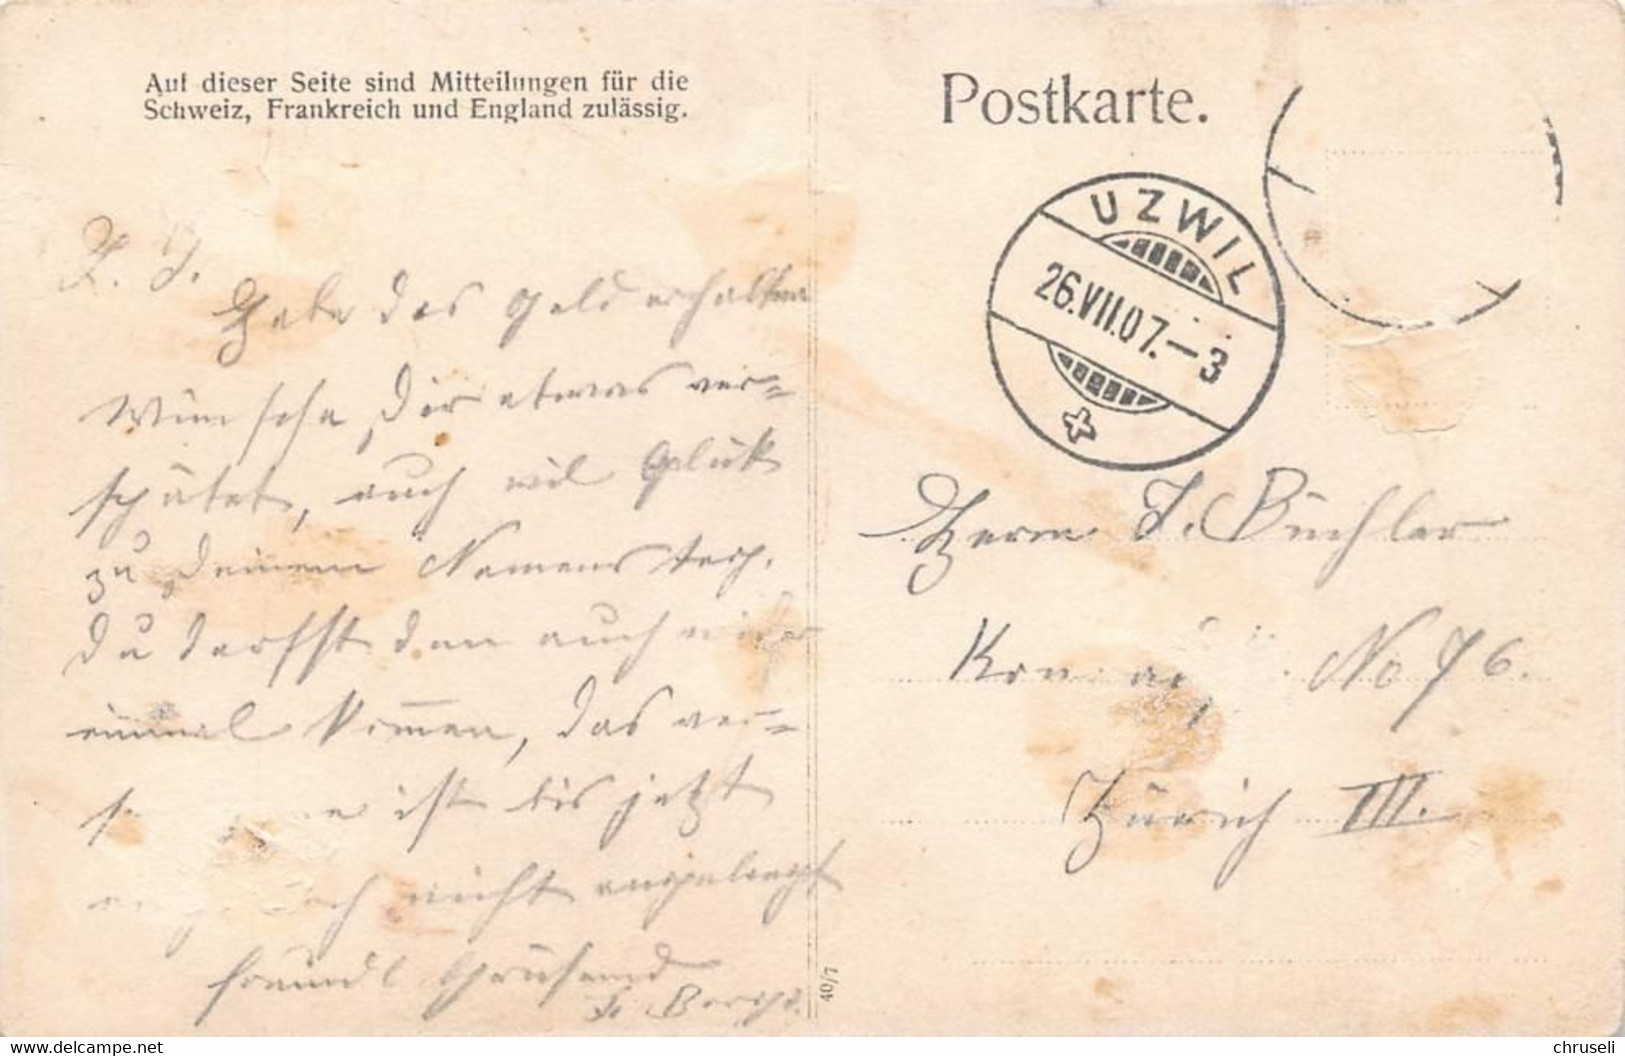 Auf dieser Seite sind Mitteilungen für die
Schweiz, Frankreich und England zulässig.
Postkarte.
UZWIL
26.VII.07.-3
Habe das Geld erhalten
Wünsche Dir etwas ver=
spätet, auch viel Glück
zu Deinem Namens
Du darfst dan auch wider
einmal kommen, das ver=
ist bis jetzt
noch nicht angelangt
freundl Grüsend
Herrn J. Büchler
No 76.
Zürich III.
40/7
www.delcampe.net
chruseli